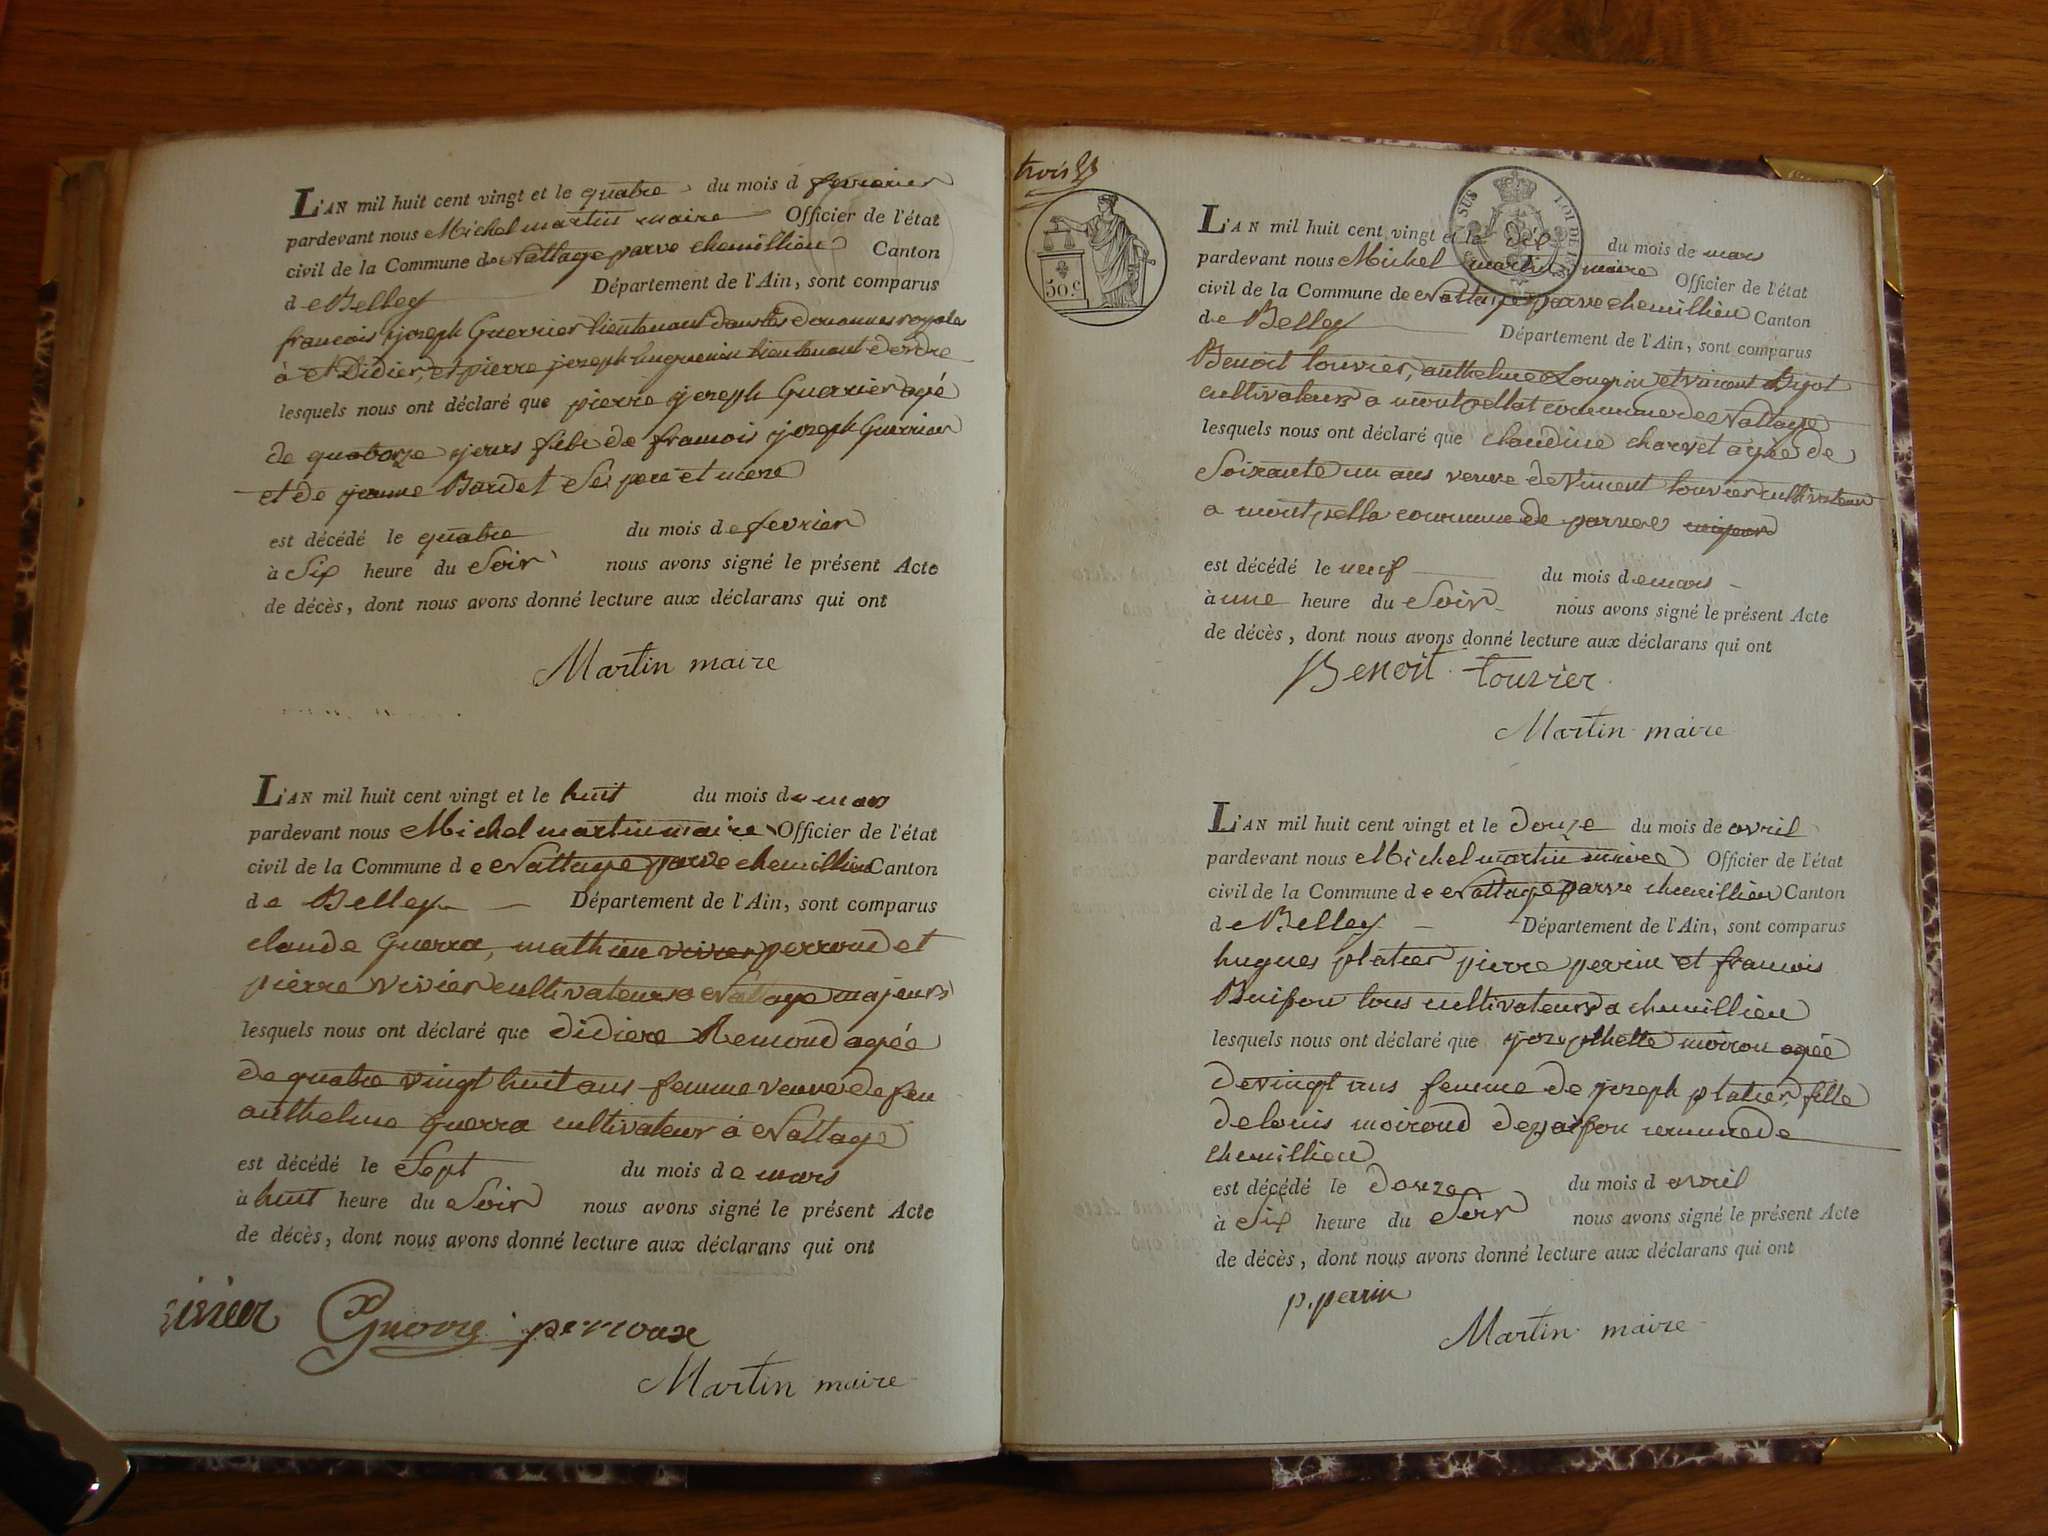 L'AN mil huit cent vingt et le quatre du mois d fevrier
pardevant nous Michel martin maire Officier de l'état
civil de la Commune de Nattage parve chemillieu Canton
de Belley Département de l'Ain, sont comparus
francois joseph Guerrier lieutenant dans les douannes royales
à St Didier, et pierre joseph huguenin lieutenant d'ordre
lesquels nous ont déclaré que pierre joseph Guerrier agé
de quatorze jours fils de francois joseph Guerrier
et de jeanne Bardet Ses pere et mere
est décédé le quatre du mois de fevrier
à Six heure du Soir nous avons signé le présent Acte
de décès, dont nous avons donné lecture aux déclarans qui ont
Martin maire
L'AN mil huit cent vingt et le huit du mois de mars
pardevant nous Michel martin maire Officier de l'état
civil de la Commune de Nattage parve chemillieu Canton
de Belley Département de l'Ain, sont comparus
claude Guerra, mathieu perroud et
pierre vivier cultivateurs a Nattage majeurs
lesquels nous ont déclaré que didiere Remond agée
de quatre vingt huit ans femme veuve de feu
anthelme Guerra cultivateur à Nattage
est décédé le Sept du mois de mars
à huit heure du Soir nous avons signé le présent Acte
de décès, dont nous avons donné lecture aux déclarans qui ont
perroux
Martin maire
trois
50 c
SUS LOI DE
L'AN mil huit cent vingt et le dix du mois de mars
pardevant nous Michel martin maire Officier de l'état
civil de la Commune de Nattage parve chemillieu Canton
de Belley Département de l'Ain, sont comparus
Benoit touvier, anthelme et vincent
cultivateurs a montpellat commune de Nattage
lesquels nous ont déclaré que claudine charvet agée de
Soixante un ans veuve de Vincent touvier cultivateur
a montpella commune de parve
est décédé le neuf du mois de mars
à une heure du Soir nous avons signé le présent Acte
de décès, dont nous avons donné lecture aux déclarans qui ont
Benoit touvier
Martin maire
L'AN mil huit cent vingt et le douze du mois de avril
pardevant nous Michel martin maire Officier de l'état
civil de la Commune de Nattage parve chemillieu Canton
de Belley Département de l'Ain, sont comparus
hugues platier pierre perrin et francois
Buisson tous cultivateurs a chemillieu
lesquels nous ont déclaré que josephette moiron agée
de vingt ans femme de joseph platier, fille
de louis moiroud de commune de
chemillieu
est décédé le douze du mois d avril
à Six heure du Soir nous avons signé le présent Acte
de décès, dont nous avons donné lecture aux déclarans qui ont
p. perrin
Martin maire